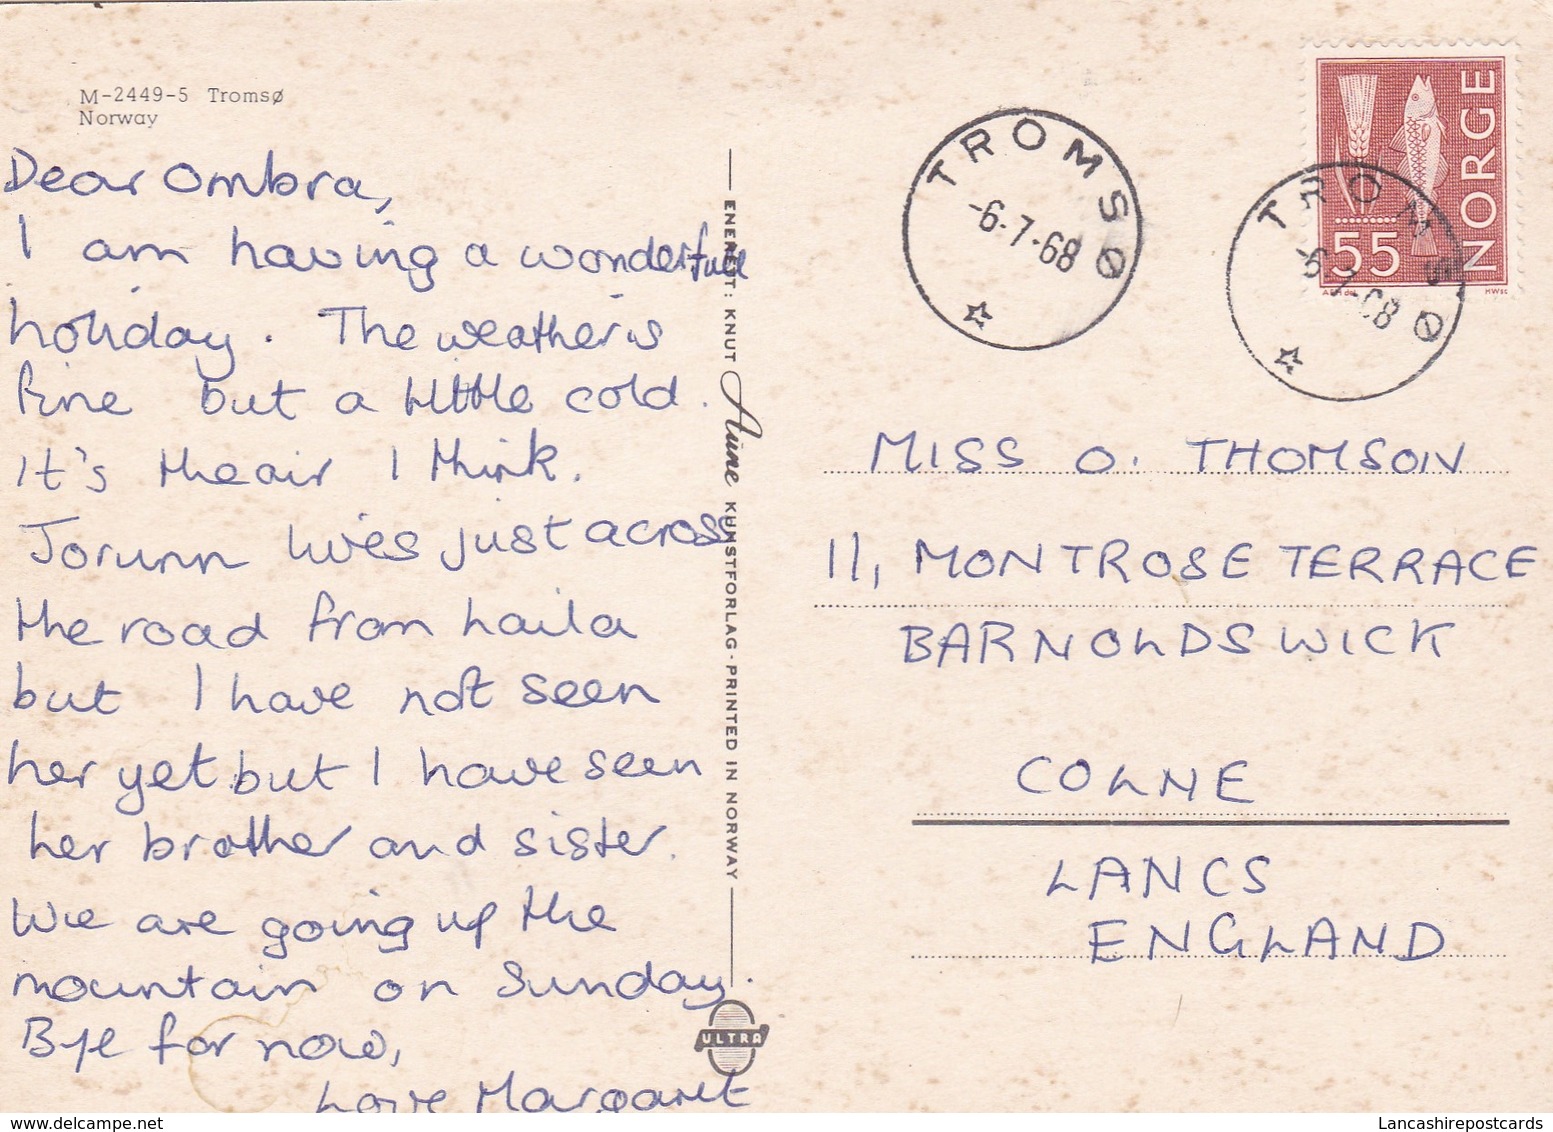 M-2449-5 Tromsø
Norway
Dear Ombra,
I am having a wonderful
holiday. The weather is
fine but a little cold.
It's the air I think.
Jorunn lives just across
the road from Laila
but I have not seen
her yet but I have seen
her brother and sister.
We are going up the
mountain on Sunday.
Bye for now,
Love Margaret
ENERETT: KNUT Aune KUNSTFORLAG · PRINTED IN NORWAY
ULTRA
TROMSØ
-6.7-68
TROMSØ
-6.7-68
NORGE
55
MISS O. THOMSON
11, MONTROSE TERRACE
BARNOLDSWICK
COLNE
LANCS
ENGLAND
delcampe.net
Lancashirepostcards